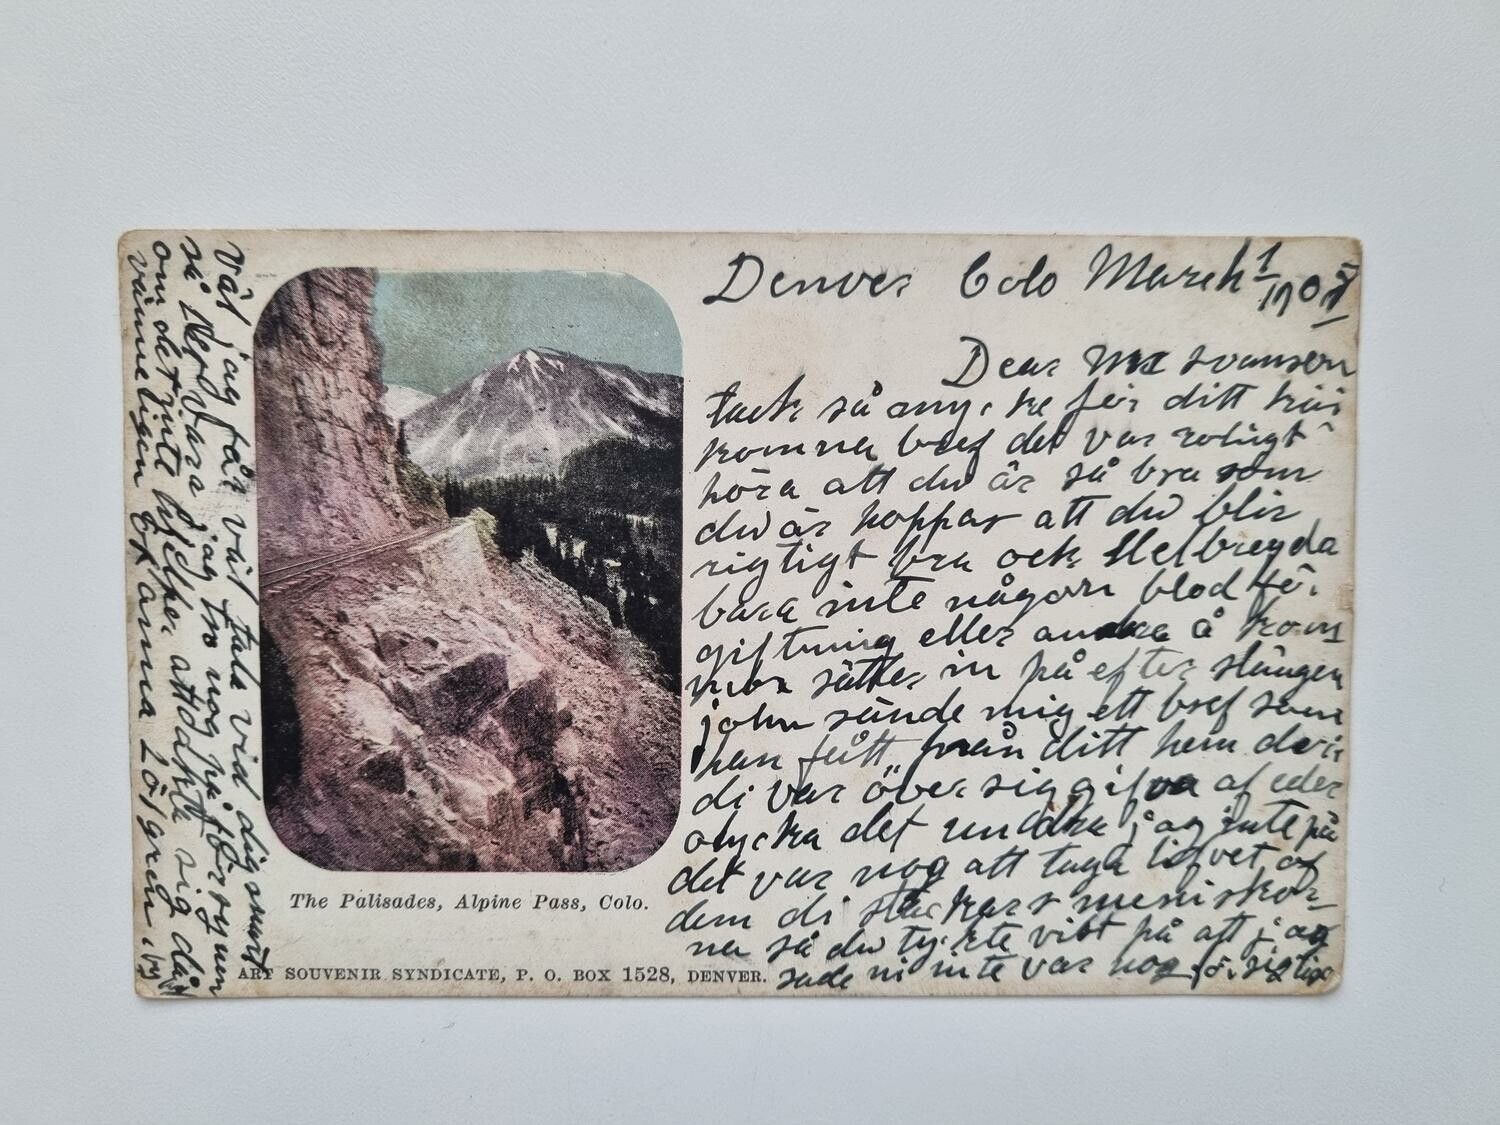 Denver Colo March 1 1905
Dear Mrs Svanson
tack så mycke för ditt kär
komna bref det var roligt
höra att du är så bra som
du är hoppas att du blir
rigtigt bra och Helbregda
bara inte någon blod för
giftning eller andra å kom
mer sätter in på efter slängen
john sände mig ett bref som
han fått från ditt hem der
di var öfver sig gifva af eder
olycka det undra jag inte på
det var nog att taga lifvet af
dem di stackars meniskor
na så du tyckte vist på att jag
sade ni inte var nog
Väl jag får väl tala vid dig snart
så Derf bara jag tro nog på försynen
om det inte hjelper att dpka sig då
vänneligen Exarna Löfgren
The Palisades, Alpine Pass, Colo.
ART SOUVENIR SYNDICATE, P. O. BOX 1528, DENVER.